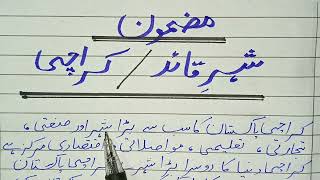 مضمون
شہرِ قائد / کراچی
کراچی پاکستان کا سب سے بڑا شہر اور صنعتی،
تجارتی، تعلیمی، مواصلاتی، اقتصادی مرکز ہے
کراچی دنیا کا دوسرا بڑا شہر ہے۔ کراچی پاکستان